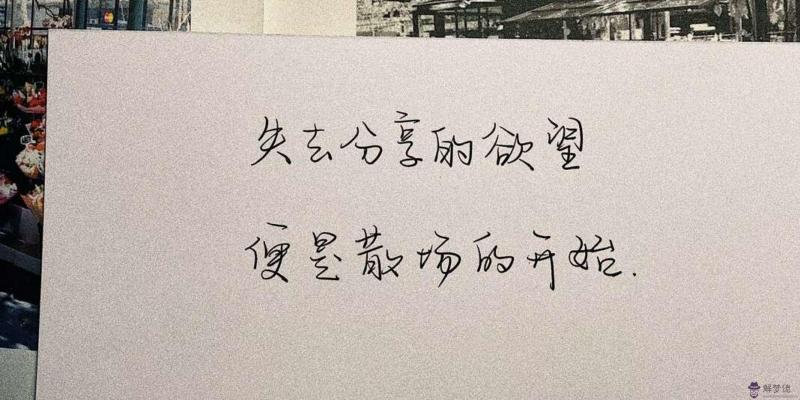 失去分享的欲望
便是散场的开始.
解梦佬